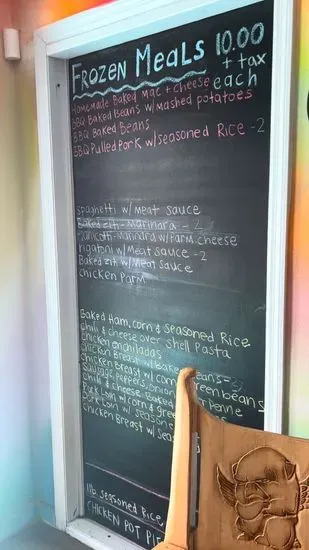 FROZEN MEALS 10.00
+ tax
each
Homemade Baked mac + cheese
BBQ Baked Beans w/mashed potatoes
BBQ Baked Beans
BBQ Pulled Pork w/seasoned Rice -2
spaghetti w/ meat sauce
Baked ziti - Marinara - 2
Manicotti-Marinara w/Parm.cheese
rigatoni w/ Meat sauce -2
Baked ziti w/Meat sauce
chicken parm
Baked Ham, corn & seasoned Rice
chili & cheese over shell Pasta
chicken enchiladas
chicken Breast w/ Baked Beans -
chicken Breast w/ corn greenbeans
sausage, Peppers, onion
chili & cheese Baked Penne
Pork Loin w/corn & gree
Pork Loin w/ seasone
Chicken Breast w/ seas
1lb. seasoned Rice
CHICKEN POT PIE